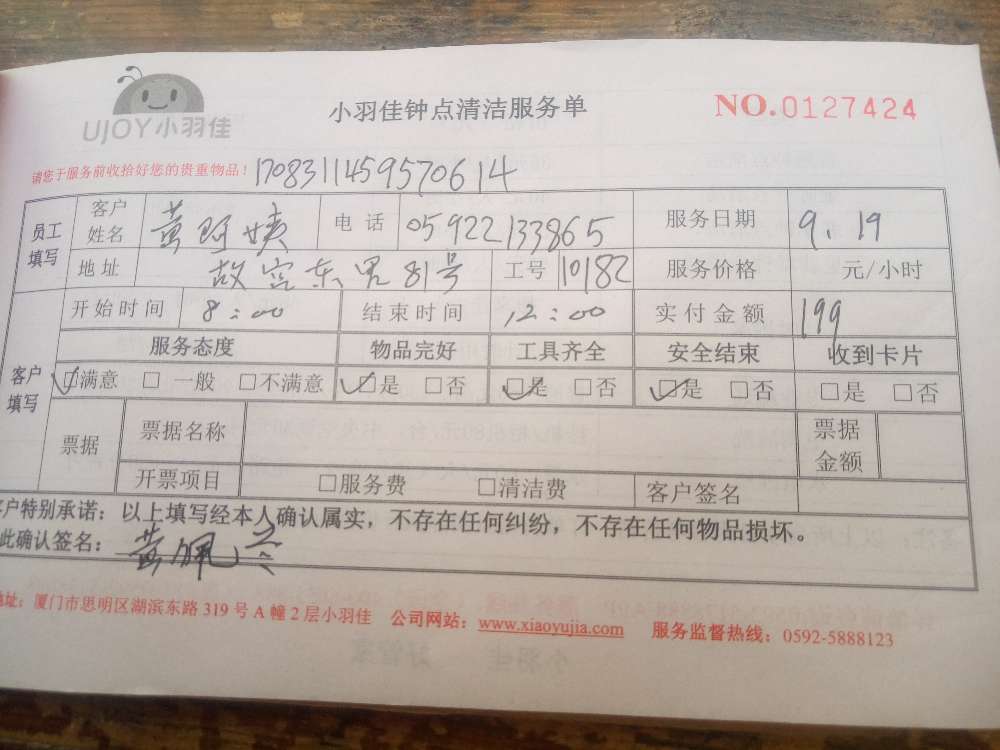 UJOY小羽佳
小羽佳钟点清洁服务单
NO.0127424
请您于服务前收拾好您的贵重物品！1708311459570614
员工填写 客户姓名 黄阿姨 电话 05922133865 服务日期 9.19
地址 故宫东里81号 工号 10182 服务价格 元/小时
开始时间 8:00 结束时间 12:00 实付金额 199
客户填写 服务态度 物品完好 工具齐全 安全结束 收到卡片
☑满意 □一般 □不满意 ☑是 □否 ☑是 □否 ☑是 □否 □是 □否
票据 票据名称 票据金额
开票项目 □服务费 □清洁费 客户签名
客户特别承诺：以上填写经本人确认属实，不存在任何纠纷，不存在任何物品损坏。
此确认签名：黄佩
地址：厦门市思明区湖滨东路319号A幢2层小羽佳 公司网站：www.xiaoyujia.com 服务监督热线：0592-5888123